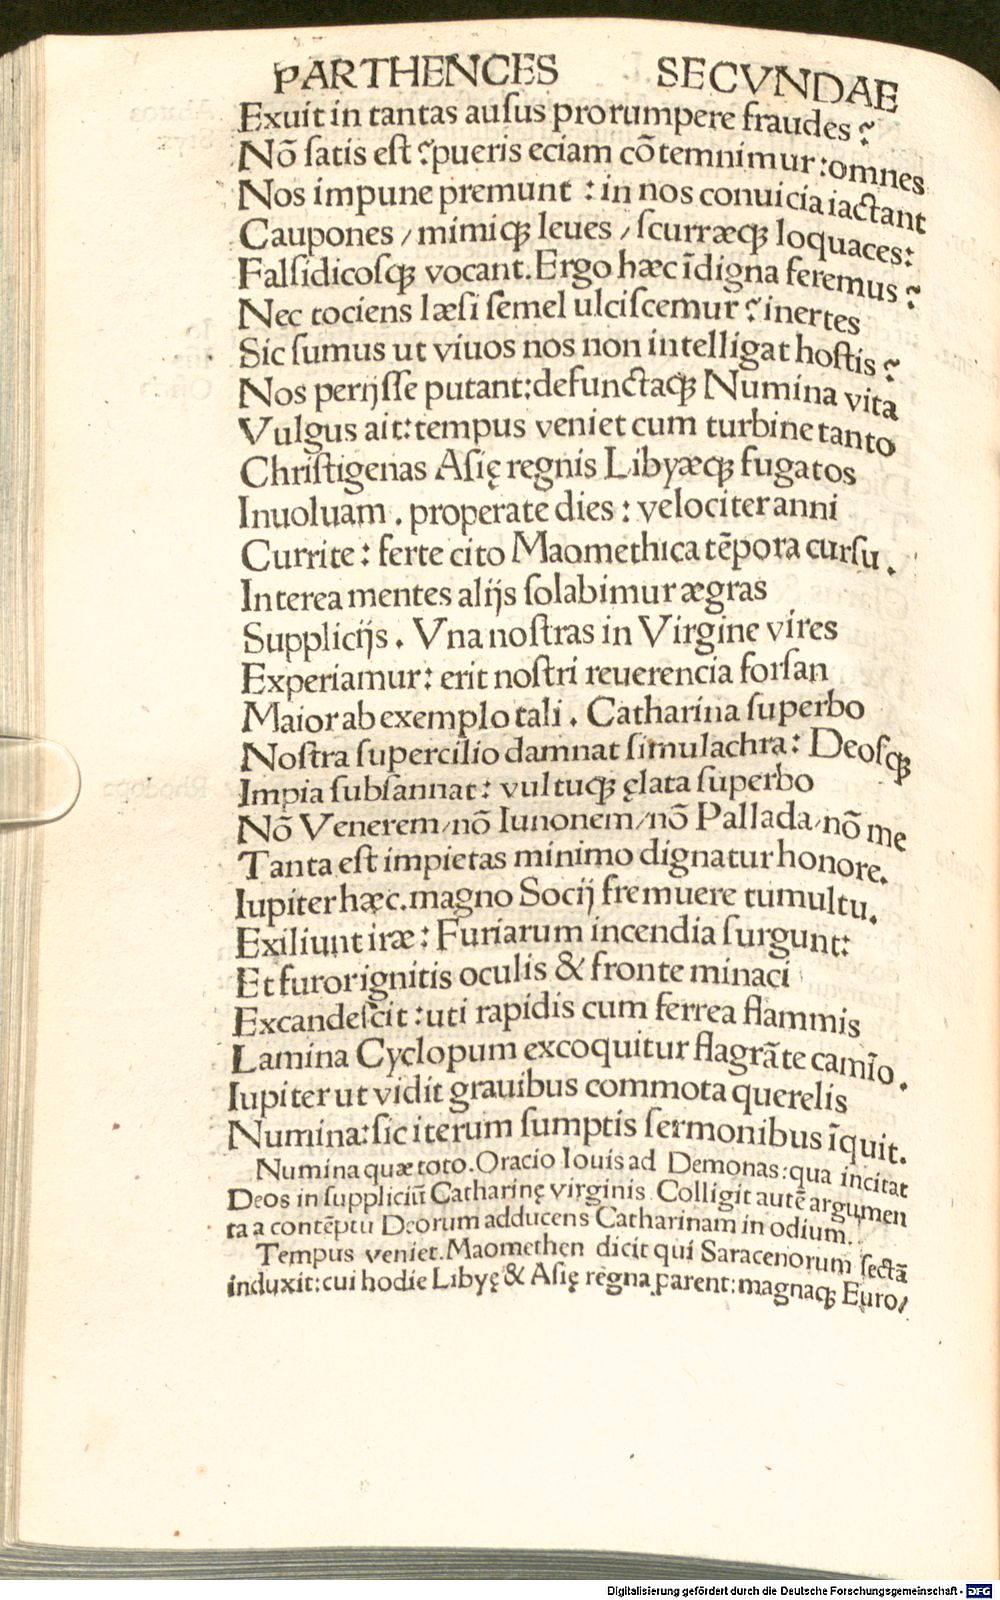 PARTHENCES SECVNDAE
Exuit in tantas ausus prorumpere fraudes?
Nõ satis est? pueris eciam cõtemnimur: omnes
Nos impune premunt: in nos conuicia iactant
Caupones / mimiqꝫ leues / scurræqꝫ loquaces:
Falsidicosqꝫ vocant. Ergo hæc ĩdigna feremus?
Nec tociens læsi semel ulciscemur? inertes
Sic sumus ut viuos nos non intelligat hostis?
Nos perijsse putant: defunctaqꝫ Numina vita
Vulgus ait: tempus veniet cum turbine tanto
Christigenas Asię regnis Libyæqꝫ fugatos
Inuoluam. properate dies: velociter anni
Currite: ferte cito Maomethica tẽpora cursu.
Interea mentes alijs solabimur ægras
Supplicijs. Vna nostras in Virgine vires
Experiamur: erit nostri reuerencia forsan
Maior ab exemplo tali. Catharina superbo
Nostra supercilio damnat simulachra: Deosqꝫ
Impia subsannat: vultuqꝫ ęlata superbo
Nõ Venerem / nõ Iunonem / nõ Pallada / nõ me
Tanta est impietas minimo dignatur honore.
Iupiter hæc. magno Socij fremuere tumultu.
Exiliunt iræ: Furiarum incendia surgunt:
Et furor ignitis oculis & fronte minaci
Excandescit: uti rapidis cum ferrea flammis
Lamina Cyclopum excoquitur flagrãte camĩo.
Iupiter ut vidit grauibus commota querelis
Numina: sic iterum sumptis sermonibus ĩquit.
Numina quæ toto. Oracio Iouis ad Demonas: qua incitat
Deos in suppliciũ Catharinę virginis. Colligit autẽ argumen
ta a contẽptu Deorum adducens Catharinam in odium.
Tempus veniet. Maomethen dicit qui Saracenorum sectã
induxit: cui hodie Libyę & Asię regna parent: magnaqꝫ Euro/
Digitalisierung gefördert durch die Deutsche Forschungsgemeinschaft - DFG